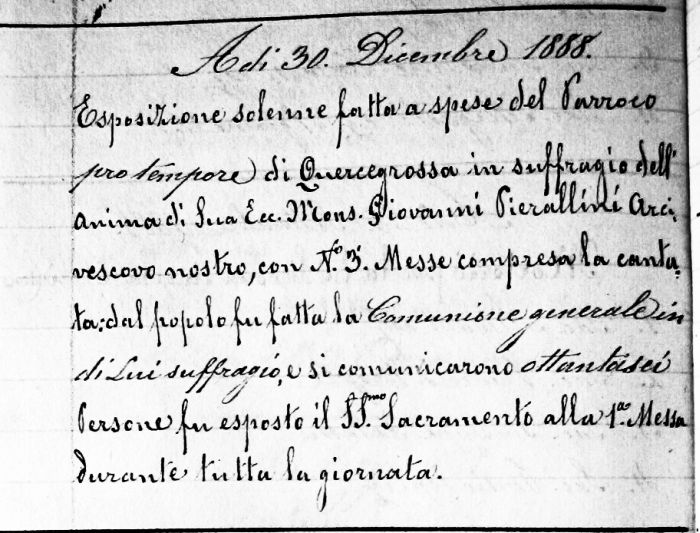 Adi 30. Dicembre 1888.
Esposizione solenne fatta a spese del Parroco
pro tempore di Quercegrossa in suffragio dell'
anima di Sua Ecc. Mons. Giovanni Pierallini Arci,
vescovo nostro, con No. 3. Messe compresa la canta,
ta: dal popolo fu fatta la Comunione generale in
di Lui suffragio, e si comunicarono ottantasei
Persone fu esposto il SS.mo Sacramento alla 1a. Messa
durante tutta la giornata.